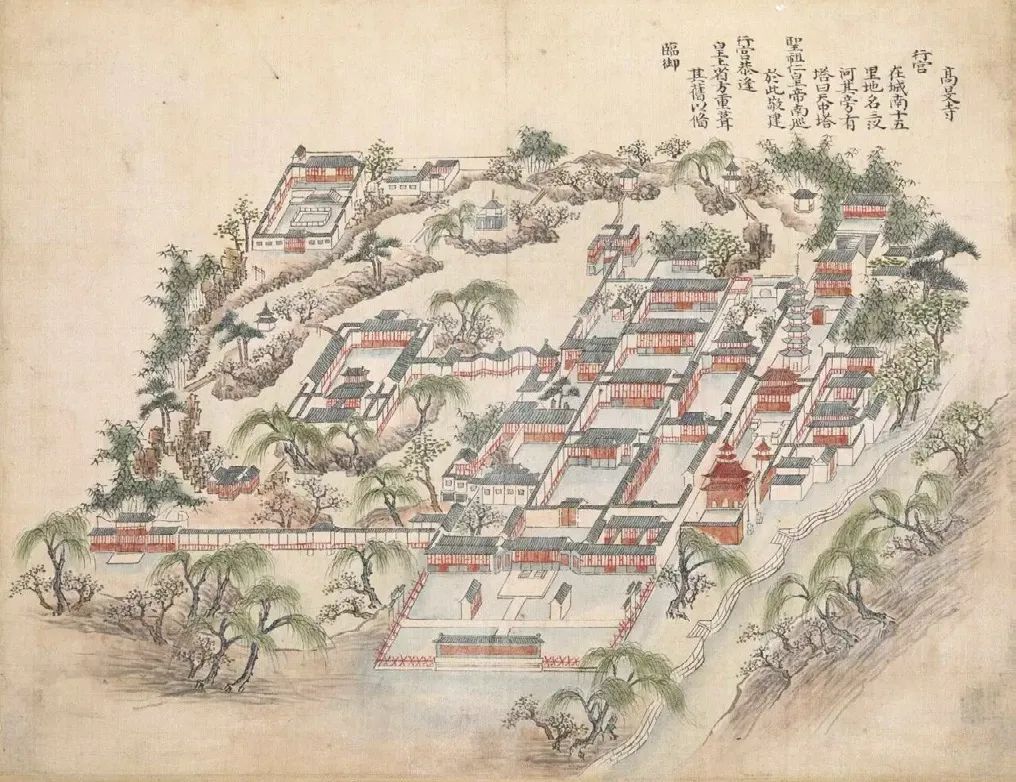 高旻寺
行宫
在城南十五
里地名三汊
河其旁有
塔曰天中塔
聖祖仁皇帝南巡
於此敬建
行宫恭逢
皇上省方重葺
其舊以俻
臨御